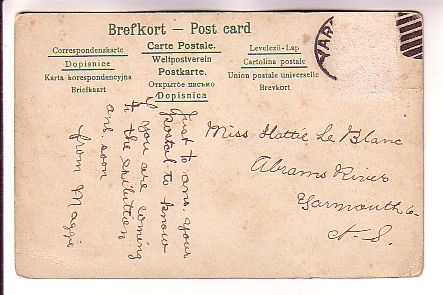 Brefkort – Post card
Correspondenzkarte
Dopisnice
Karta korespondencyjna
Briefkaart
Carte Postale.
Weltpostverein
Postkarte.
Открытое письмо
Dopisnica
Levelezö-Lap
Cartolina postale
Union postale universelle
Brevkort
YAR
Just to ans. your
postal to know
if you are coming
to the exibition
ans. soon
from Maggie
Miss Hattie Le Blanc
Abrams River
Yarmouth Co
N. S.